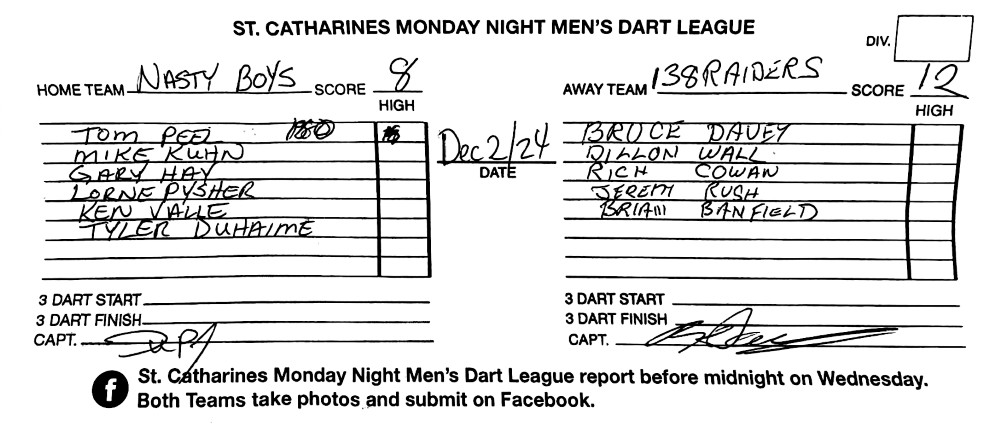 ST. CATHARINES MONDAY NIGHT MEN'S DART LEAGUE
DIV.
HOME TEAM NASTY BOYS SCORE 8
HIGH
AWAY TEAM 138 RAIDERS SCORE 12
HIGH
TOM PEEL
MIKE KUHN
GARY HAY
LORNE PYSHER
KEN VALLE
TYLER DUHAIME
Dec 2/24
DATE
BRUCE DAVEY
DILLON WALL
RICH COWAN
JEREMY RUSH
BRIAN BANFIELD
3 DART START
3 DART FINISH
CAPT.
3 DART START
3 DART FINISH
CAPT.
f St. Catharines Monday Night Men's Dart League report before midnight on Wednesday.
Both Teams take photos and submit on Facebook.